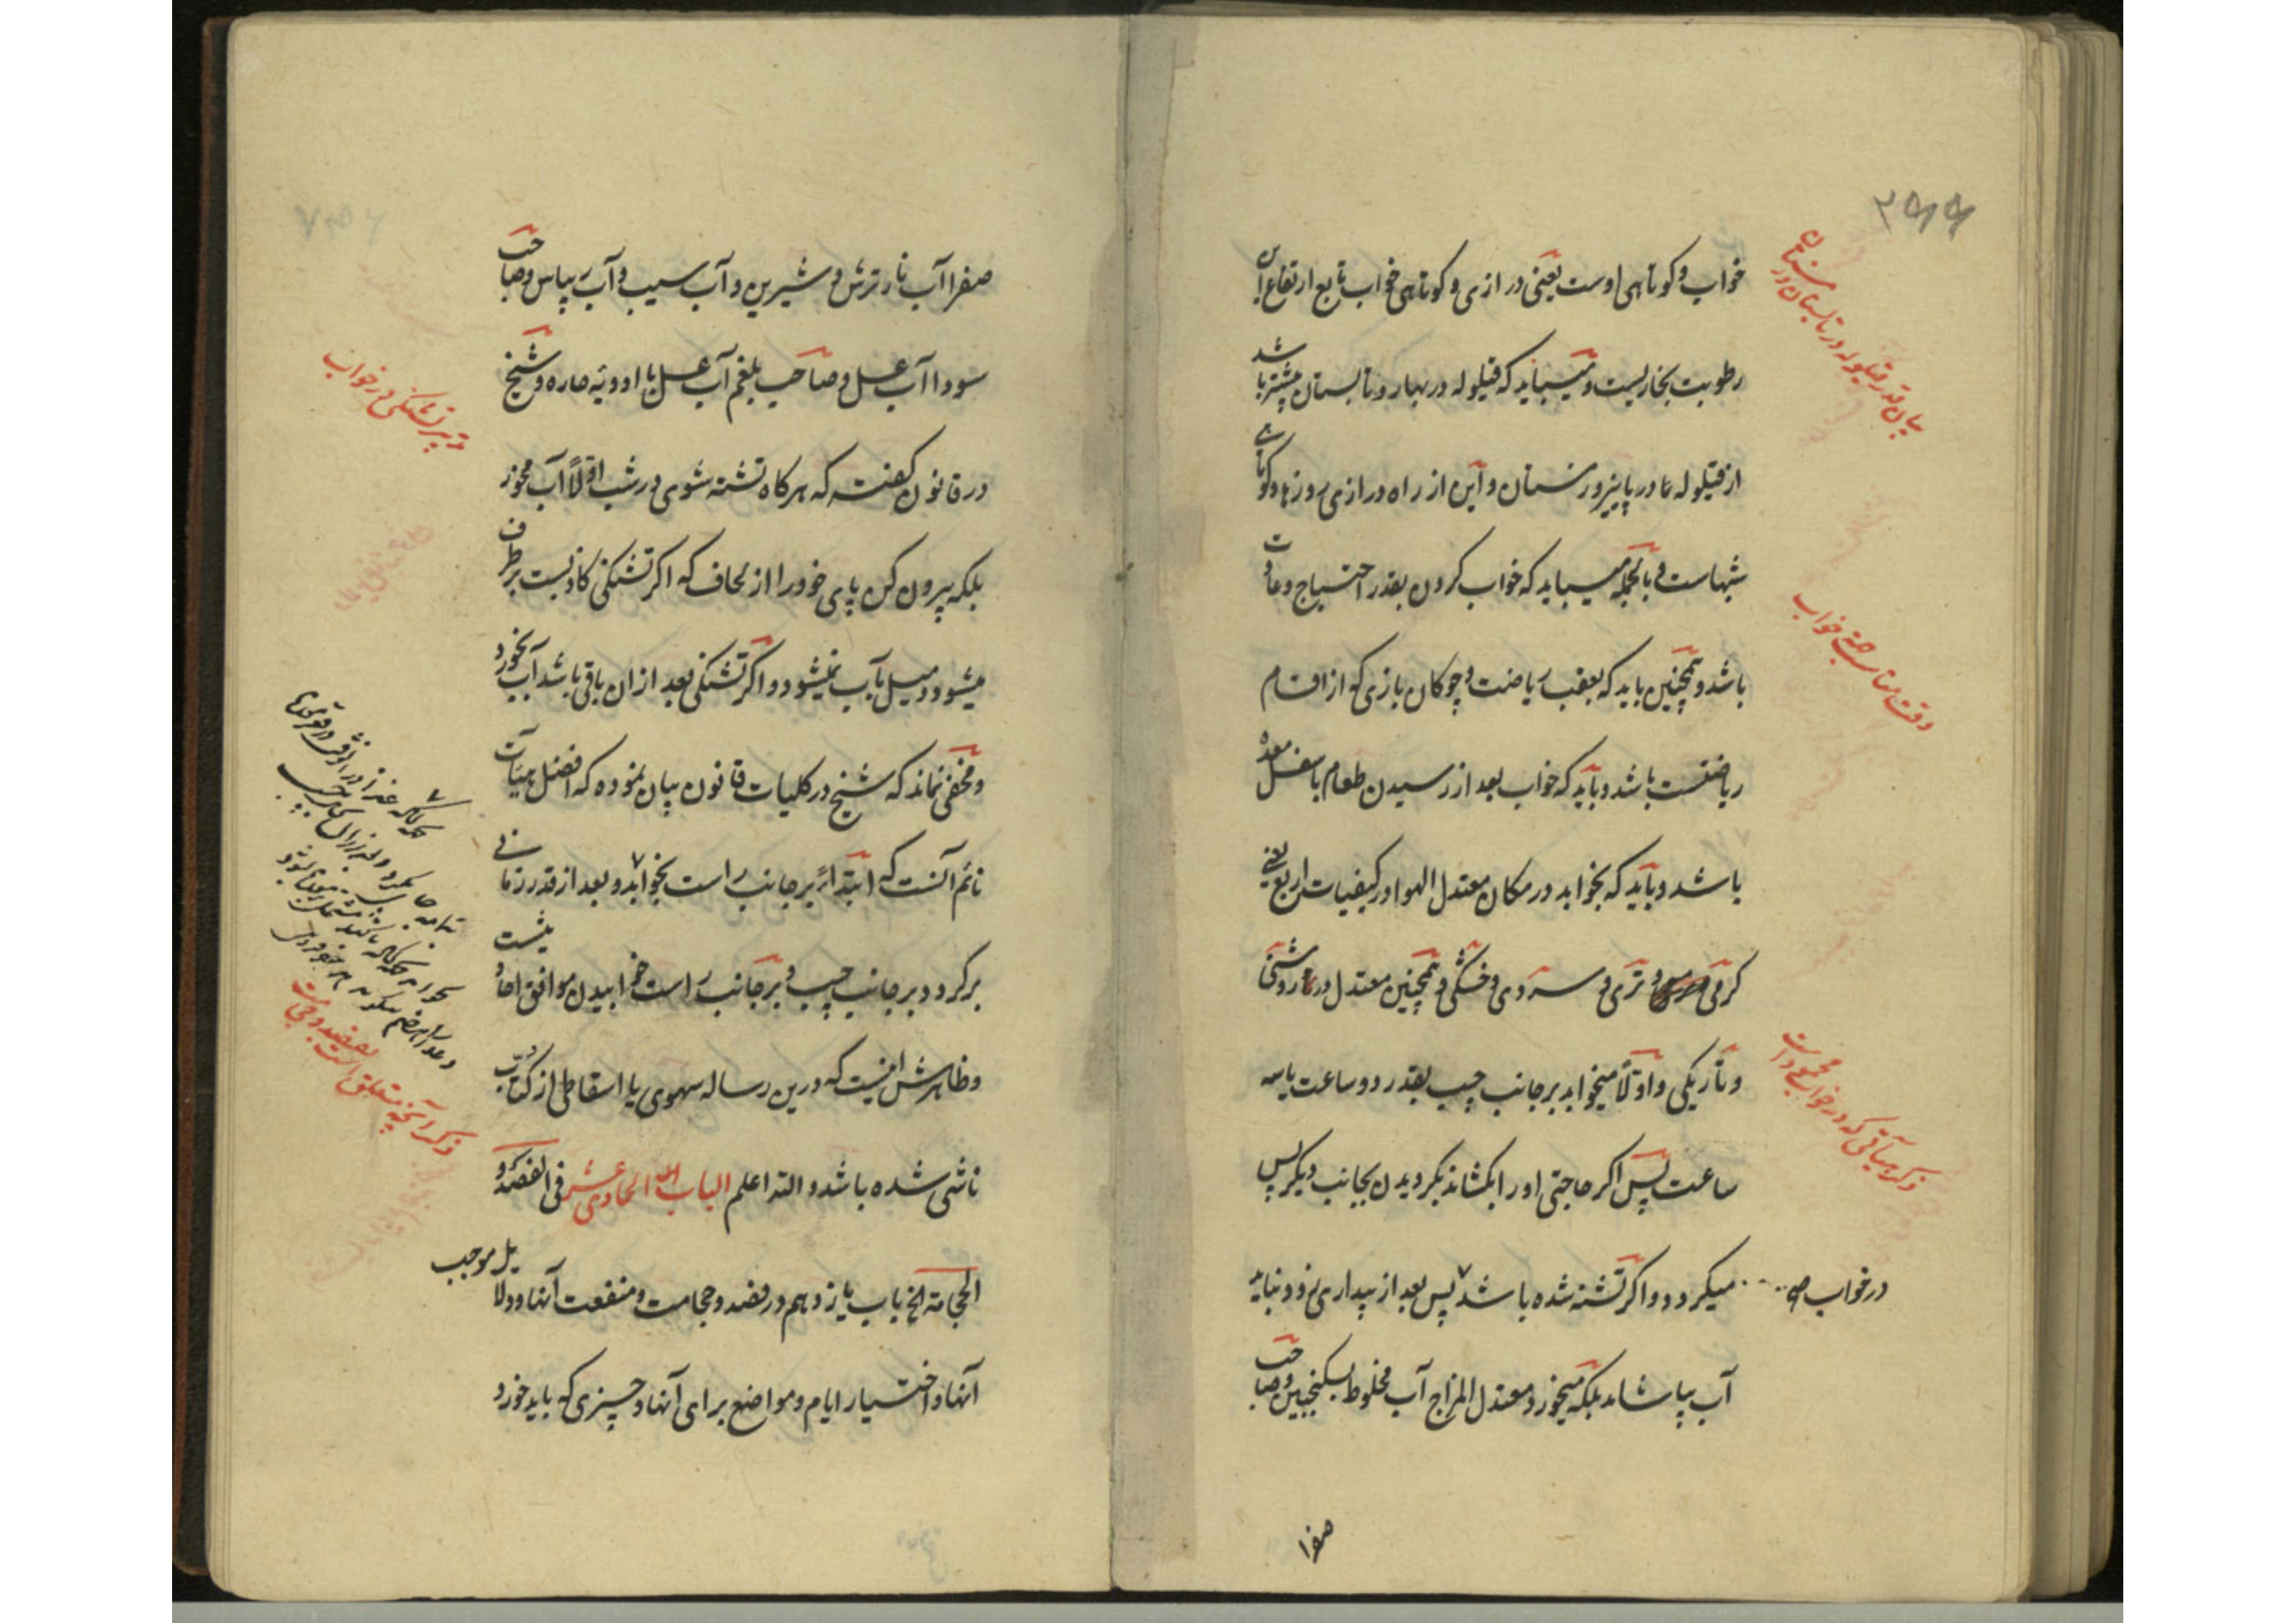 خواب و کوتاهی اوست یعنی درازی و کوتاهی خواب تابع ارتفاع این
رطوبت بخاریست و میباید که قیلوله در بهار و تابستان بیشتر باشد
از قیلوله ما در پاییز و زمستان و این از راه درازی روزها و کوتاهی
شبهاست و بالجمله میباید که خواب کردن بقدر احتیاج و عادت
باشد و همچنین باید که بعقب ریاضت و چوکان بازی که از اقسام
ریاضتست باشد و باید که خواب بعد از رسیدن طعام باسفل معده
باشد و باید که بخوابد در مکان معتدل الهوا در کیفیات اربع یعنی
کرمی و تری و سردی و خشکی و همچنین معتدل در روشنی
و تاریکی و اولاً میخوابد بر جانب چپ بقدر دو ساعت یا سه
ساعت پس اکر حاجتی او را بکشاند بکردیدن بجانب دیکر پس
میکردد و اکر تشنه شده باشد پس بعد از بیداری زود نباید
در خواب صح
آب بیاشامد بلکه میخورد معتدل المزاج آب مخلوط بسکنجبین و صاحب
صفرا
بیان قدر قیلوله در تابستان و زمستان
وقت مناسب جهة خواب
ذکر هیآتی که در خواب محمود است
صفرا آب نار ترش و شیرین و آب سیب و آب ریباس و صاحب
سودا آب عسل و صاحب بلغم آب عسل با ادویهٔ حاره و شیخ
در قانون کفته که هرکاه تشنه شوی در شب اولاً آب مخور
بلکه بیرون کن پای خود را از لحاف که اکر تشنکی کاذبست برطرف
میشود و میل بآب نمیشود و اکر تشنکی بعد از ان باقی باشد آب بخورد
و مخفی نماند که شیخ در کلیات قانون بیان نموده که افضل هیآت
نائم آنست که ابتداءً بر جانب راست بخوابد و بعد از قدر زمانی
برکردد بر جانب چپ و بر جانب راست خوابیدن موافق احادیث
و ظاهرش اینست که درین رساله سهوی یا اسقاطی از کتاب
ناشی شده باشد و الله اعلم الباب الحادی عشر فی الفصد و
الحجامة الخ باب یازدهم در فصد و حجامت و منفعت آنها و دلایل موجب
آنها و اختیار ایام و مواضع برای آنها و چیزی که باید خورد
تدبیر تشنکی در خواب
ذکر آنچه متعلق است بفصد و حجامت